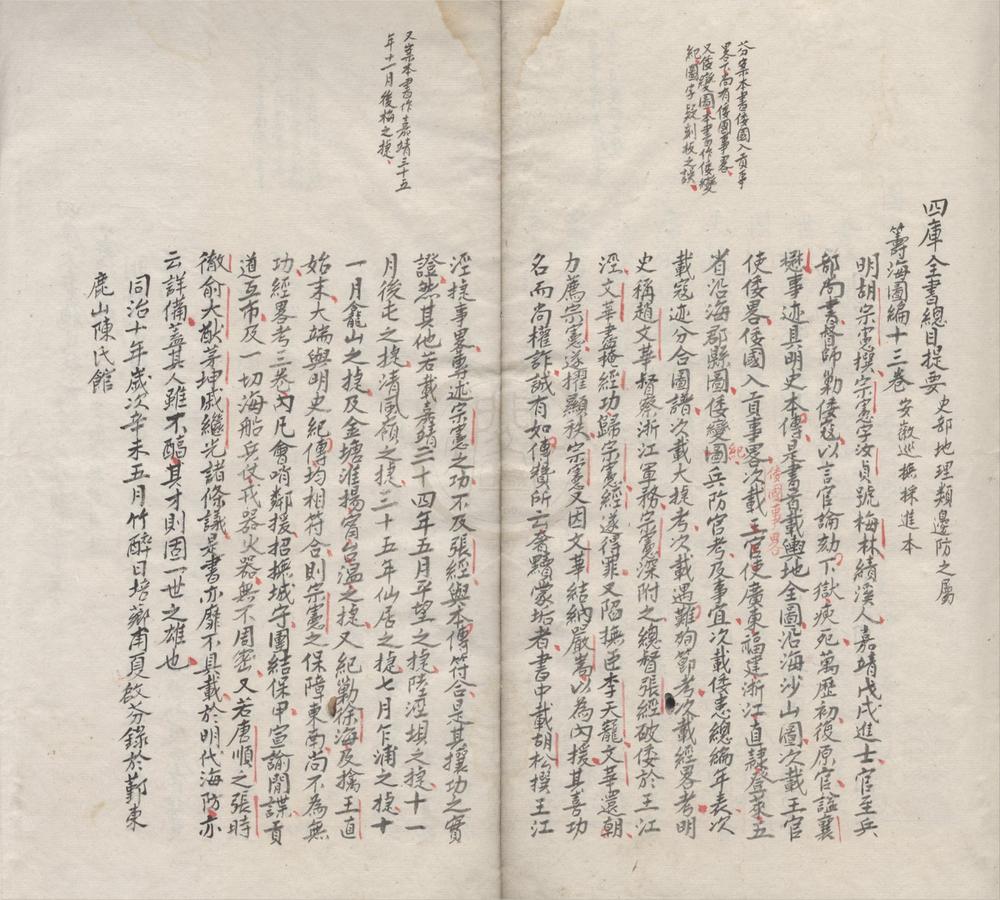 四庫全書總目提要 史部地理類邊防之屬
籌海圖編十三卷 安徽巡撫採進本
明胡宗憲撰宗憲字汝貞號梅林績溪人嘉靖戊戌進士官至兵
部尚書督師勦倭寇以言官論劾下獄瘐死萬歷初復原官謚襄
懋事迹具明史本傳是書首載輿地全圖沿海沙山圖次載王官
使倭畧倭國入貢事畧倭國事畧次載王官使廣東福建浙江直隸登萊五
省沿海郡縣圖倭變圖紀兵防官考及事宜次載倭患總編年表次
載寇迹分合圖譜次載大捷考次載遇難殉節考次載經畧考明
史稱趙文華督察浙江軍務宗憲深附之總督張經破倭於王江
涇文華盡掩經功歸宗憲經遂得罪又陷撫臣李天寵文華還朝
力薦宗憲遂擢顯秩宗憲又因文華結納嚴嵩以為內援其喜功
名而尚權詐誠有如傳贊所云奢黷蒙垢者書中載胡松撰王江
芬案本書倭國入貢事
畧下尚有倭國事畧
又倭變圖本書作倭變
紀圖字疑刻板之誤
涇捷事畧專述宗憲之功不及張經與本傳符合是其攘功之實
證然其他若載嘉靖三十四年五月平望之捷陸涇壩之捷十一
月後屯之捷清風嶺之捷三十五年仙居之捷七月乍浦之捷十
一月龕山之捷及金塘淮揚甯台溫之捷又紀勦徐海及擒王直
始末大端與明史紀傳均相符合則宗憲之保障東南尚不為無
功經畧考三卷內凡會哨鄰援招撫城守團結保甲宣諭閒諜貢
道互市及一切海船兵仗戎器火器無不周密又若唐順之張時
徹俞大猷茅坤戚繼光諸條議是書亦靡不具載於明代海防亦
云詳備蓋其人雖不醇其才則固一世之雄也
同治十年歲次辛未五月竹醉日培薌甫夏啟芬錄於鄞東
鹿山陳氏館
又案本書作嘉靖三十五
年十一月後梅之捷